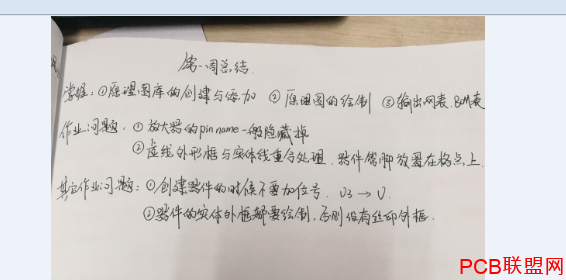 第一周总结.
掌握：①原理图库的创建与添加 ②原理图的绘制 ③输出网表.BOM表
作业问题：①放大器的pin name一般隐藏掉
②虚线外形框与实体线重合处理.器件管脚放置在格点上.
其它作业问题：①创建器件的时候不要加位号. U3→U
②器件的实体外框都要绘制,否则没有丝印外框.
PCB联盟网